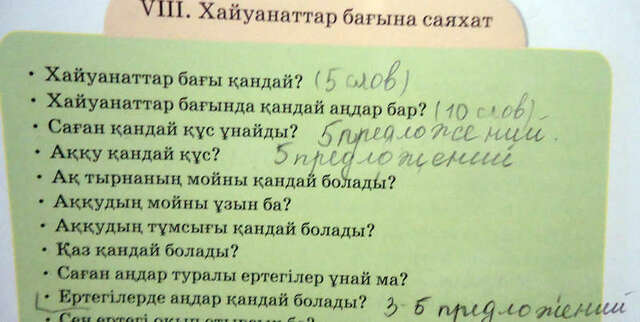 VIII. Хайуанаттар бағына саяхат
• Хайуанаттар бағы қандай? (5 слов)
• Хайуанаттар бағында қандай аңдар бар? (10 слов).
• Саған қандай құс ұнайды? 5 предложений.
• Аққу қандай құс? 5 предложений
• Ақ тырнаның мойны қандай болады?
• Аққудың мойны ұзын ба?
• Аққудың тұмсығы қандай болады?
• Қаз қандай болады?
• Саған аңдар туралы ертегілер ұнай ма?
• Ертегілерде аңдар қандай болады? 3-5 предложений
• Сен ертегі оқып отырсың ба?